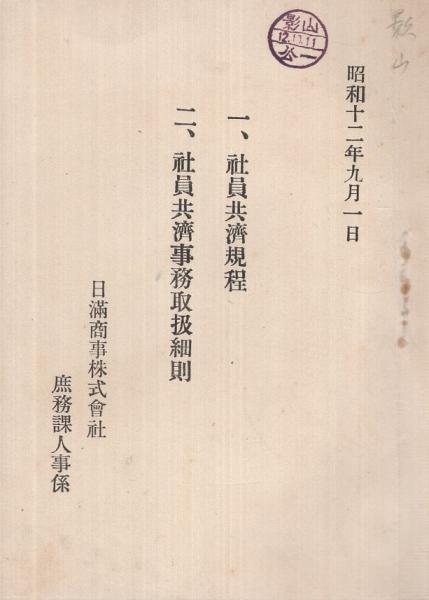 昭和十二年九月一日
一、社員共濟規程
二、社員共濟事務取扱細則
日滿商事株式會社
庶務課人事係
影山